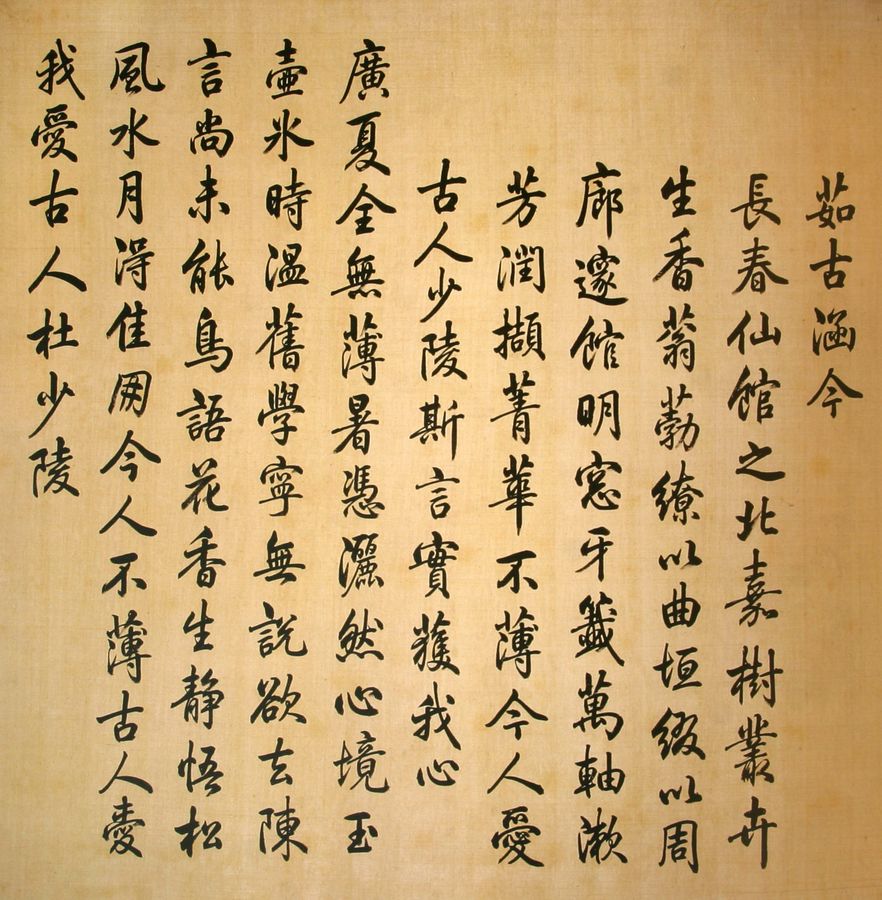 茹古涵今
長春仙館之北嘉樹叢卉
生香蓊葧繚以曲垣綴以周
廊邃館明窓牙籤萬軸漱
芳潤擷菁華不薄今人愛
古人少陵斯言實獲我心
廣夏全無薄暑憑灑然心境玉
壺氷時溫舊學寧無說欲去陳
言尚未能鳥語花香生靜悟松
風水月淂佳朋今人不薄古人愛
我愛古人杜少陵